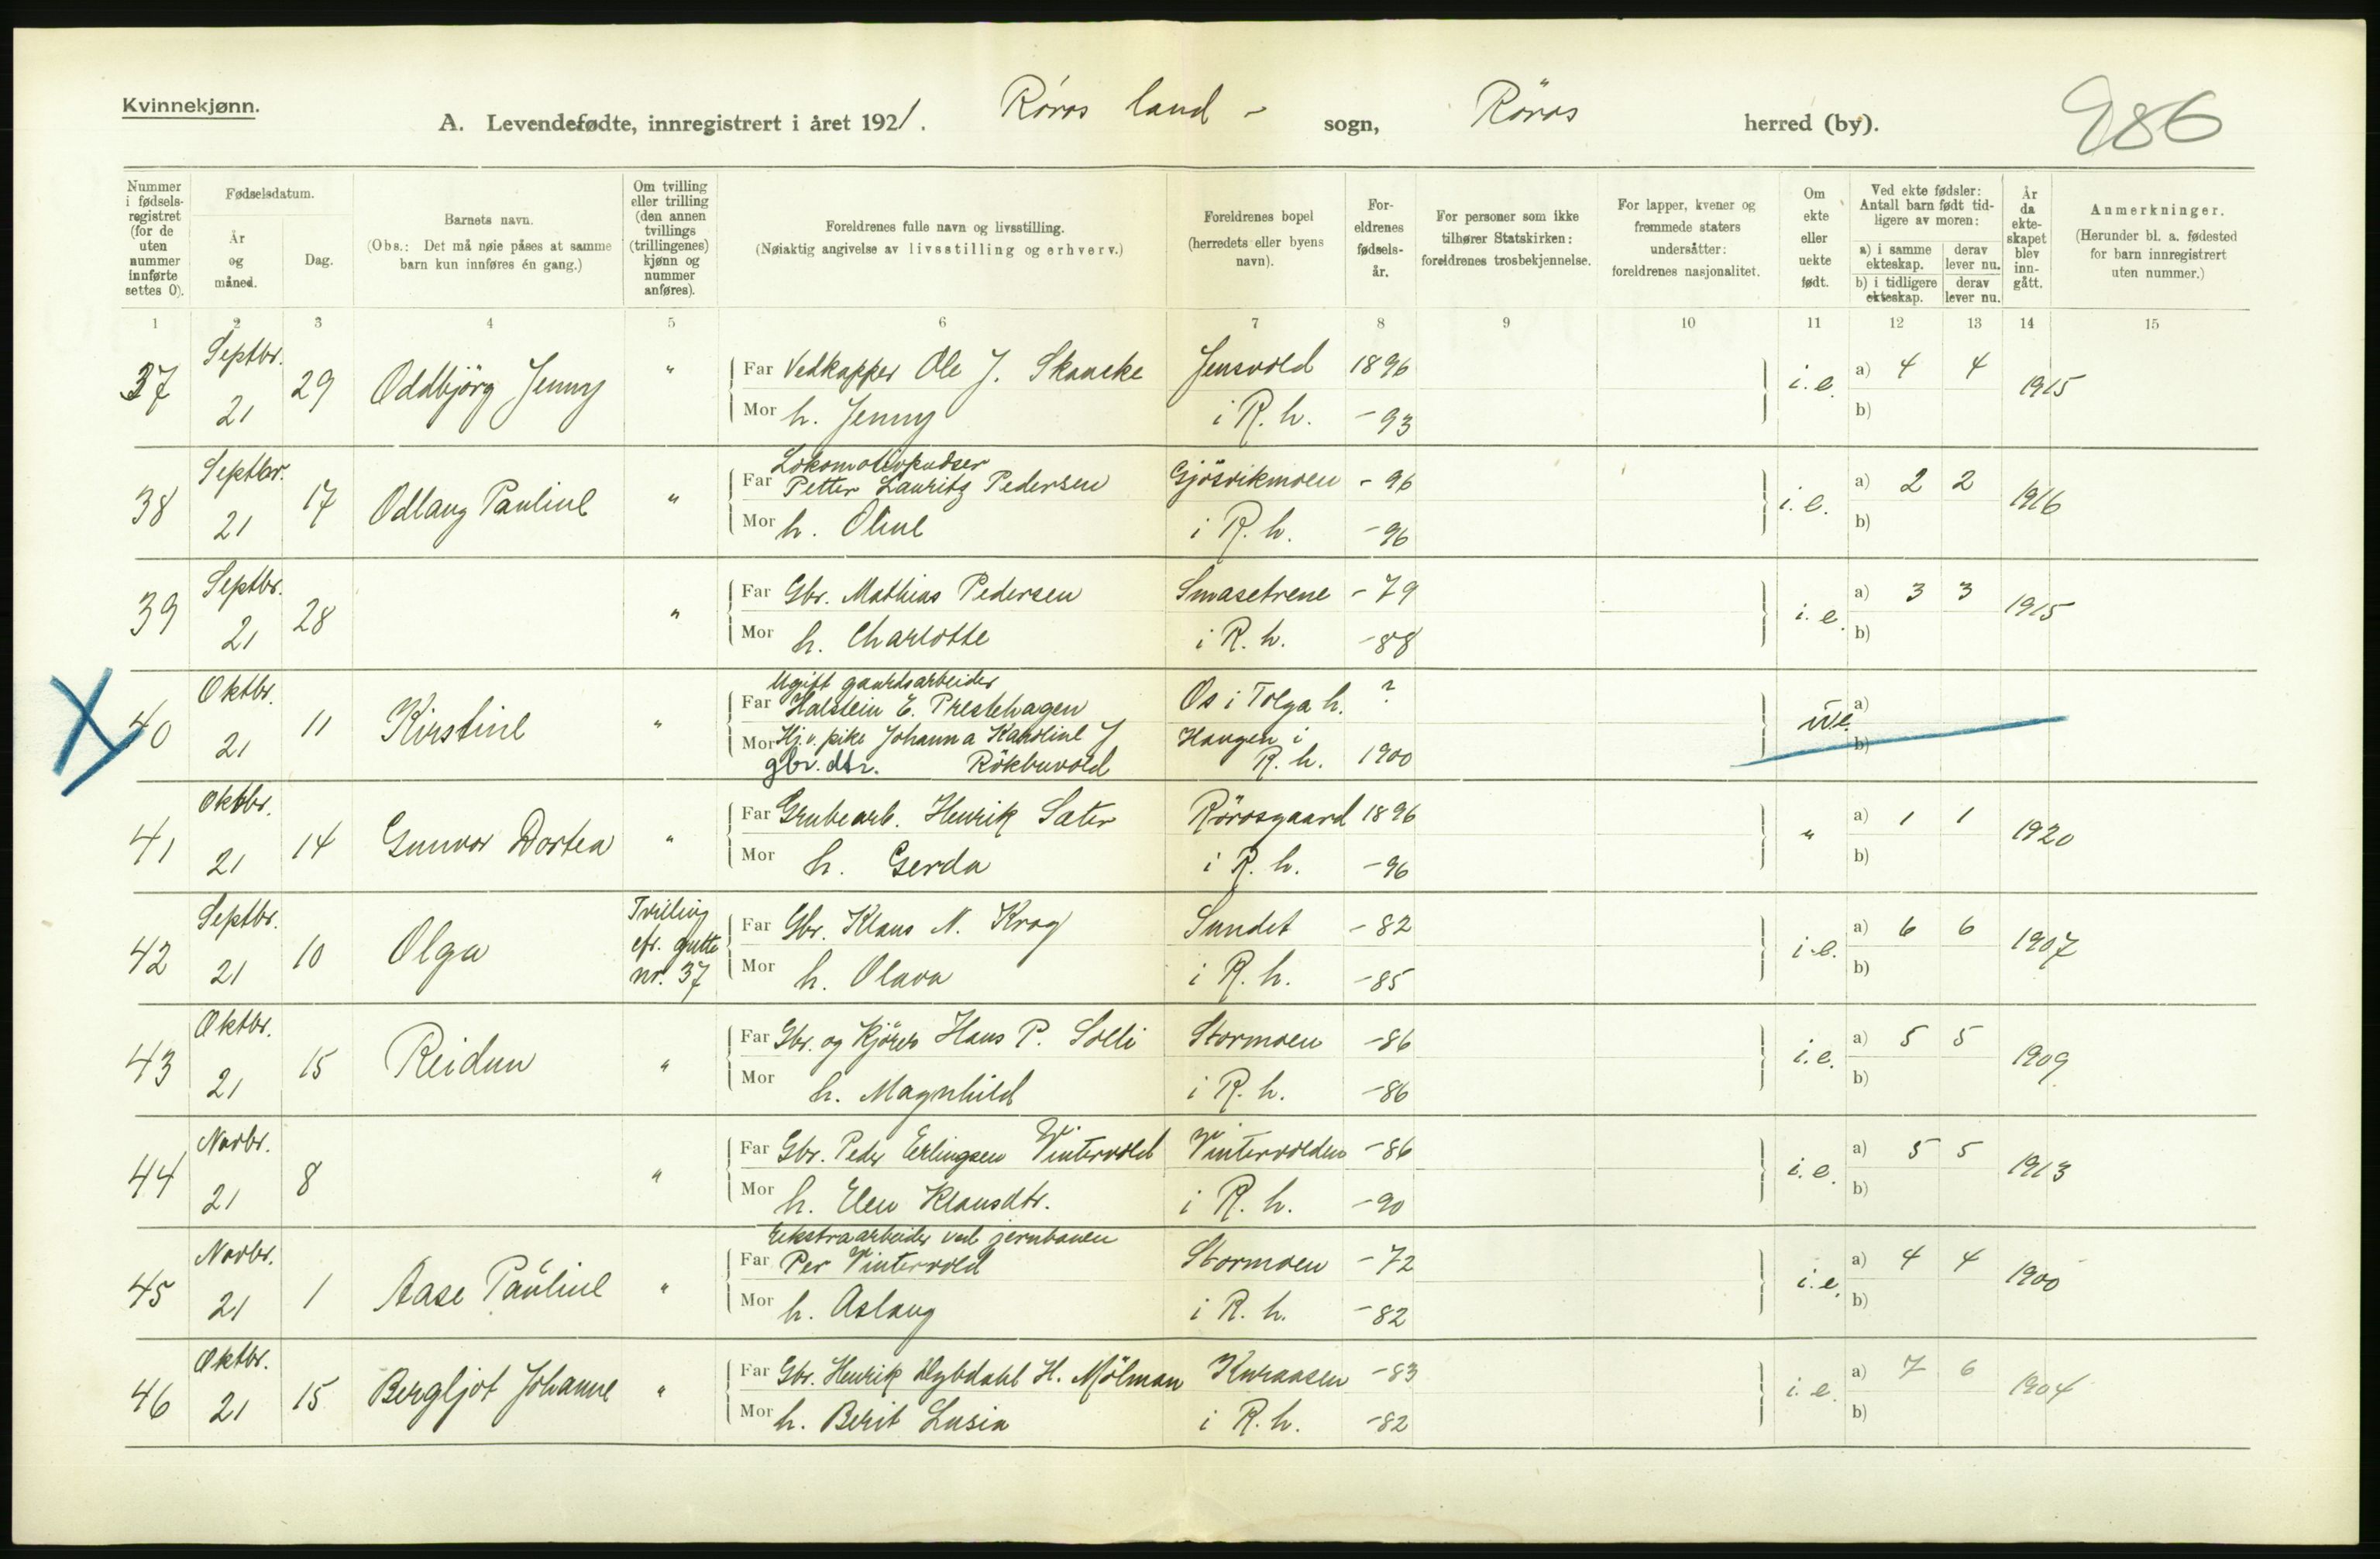 Kvinnekjønn.
A. Levendefødte, innregistrert i året 1921. Røros land - sogn, Röros herred (by). 286
Nummer i fødselsregistret (for de uten nummer innførte settes 0).
Fødselsdatum.
År og måned.
Dag.
Barnets navn.
(Obs.: Det må nøie påses at samme barn kun innføres én gang.)
Om tvilling eller trilling (den annen tvillings (trillingenes) kjønn og nummer anføres).
Foreldrenes fulle navn og livsstilling.
(Nøiaktig angivelse av livsstilling og erhverv.)
Foreldrenes bopel (herredets eller byens navn).
Foreldrenes fødselsår.
For personer som ikke tilhører Statskirken: foreldrenes trosbekjennelse.
For lapper, kvener og fremmede staters undersåtter: foreldrenes nasjonalitet.
Om ekte eller uekte født.
Ved ekte fødsler: Antall barn født tidligere av moren:
a) i samme ekteskap. derav lever nu.
b) i tidligere ekteskap. derav lever nu.
År da ekteskapet blev inngått.
Anmerkninger.
(Herunder bl. a. fødested for barn innregistrert uten nummer.)
1 2 3 4 5 6 7 8 9 10 11 12 13 14 15
37 Septbr. 21 29 Oddbjörg Jenny " Far Vedkapper Ole J. Skancke Jensvold 1896 i.e. a) 4 4 1915
Mor h. Jenny i R. h. -93 b)
38 Septbr. 21 17 Odlaug Pauline " Lokomotivpudser
Far Petter Lauritz Pedersen Gjösvikmoen -96 i.e. a) 2 2 1916
Mor h. Oline i R. h. -96 b)
39 Septbr. 21 28 " Far Gbr. Mathias Pedersen Smasetrene -79 i.e. a) 3 3 1915
Mor h. Charlotte i R. h. -88 b)
40 Oktbr. 21 11 Kirstine " Ugift gaardsarbeider
Far Halstein E. Prestehagen Os i Tolga h. ? u.e. a)
Mor Hj.v. pike Johanna Karoline J Haugen i b)
gbr. dtr. Rökbuvold R. h. 1900
41 Oktbr. 21 14 Gunvor Dortea " Far Grubearb. Henrik Sæter Rörosgaard 1896 " a) 1 1 1920
Mor h. Gerda i R. h. -96 b)
42 Septbr. 21 10 Olga Tvilling cfr. gutte nr. 37 Far Gbr. Klaus N. Krog Sundet -82 i.e. a) 6 6 1907
Mor h. Olava i R. h. -85 b)
43 Oktbr. 21 15 Reidun " Far Gbr. og Kjörer Hans P. Solli Stormoen -86 i.e. a) 5 5 1909
Mor h. Magnhild i R. h. -86 b)
44 Novbr. 21 8 " Far Gbr. Peder Erlingsen Vintervold Vintervolden -86 i.e. a) 5 5 1913
Mor h. Elen Klausdtr. i R. h. -90 b)
45 Novbr. 21 1 Aase Pauline " Ekstraarbeider ved jernbanen
Far Per Vintervold Stormoen -72 i.e. a) 4 4 1900
Mor h. Aslaug i R. h. -82 b)
46 Oktbr. 21 15 Bergljot Johanne " Far Gbr. Henrik Dybdahl H. Mölman Kuraasen -83 i.e. a) 7 6 1904
Mor h. Berit Lusia i R. h. -82 b)